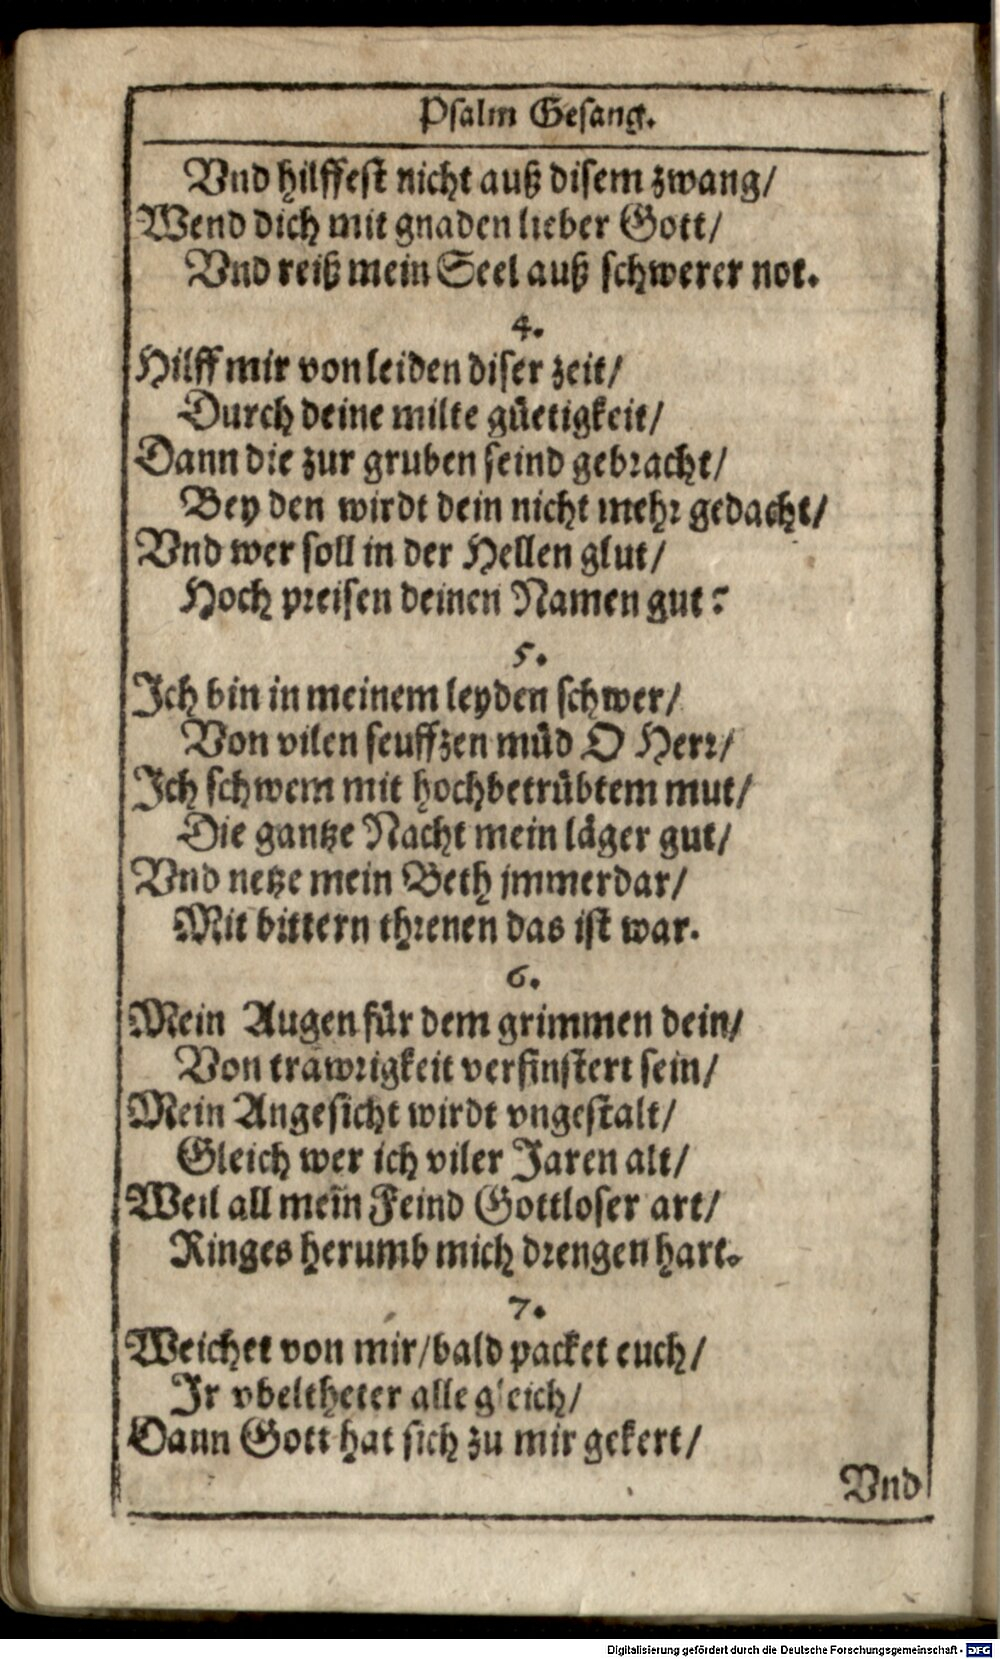 Psalm Gesang.
Vnd hilffest nicht auß disem zwang/
Wend dich mit gnaden lieber Gott/
Vnd reiß mein Seel auß schwerer not.
4.
Hilff mir von leiden diser zeit/
Durch deine milte güetigkeit/
Dann die zur gruben seind gebracht/
Bey den wirdt dein nicht mehr gedacht/
Vnd wer soll in der Hellen glut/
Hoch preisen deinen Namen gut?
5.
Ich bin in meinem leyden schwer/
Von vilen seuffzen müd O Herr/
Ich schwem mit hochbetrübtem mut/
Die gantze Nacht mein läger gut/
Vnd netze mein Beth jmmerdar/
Mit bittern threnen das ist war.
6.
Mein Augen für dem grimmen dein/
Von träwrigkeit verfinstert sein/
Mein Angesicht wirdt vngestalt/
Gleich wer ich viler Jaren alt/
Weil all mein Feind Gottloser art/
Ringes herumb mich drengen hart.
7.
Weichet von mir/bald packet euch/
Ir vbeltheter alle gleich/
Dann Gott hat sich zu mir gekert/
Vnd
Digitalisierung gefördert durch die Deutsche Forschungsgemeinschaft - DFG